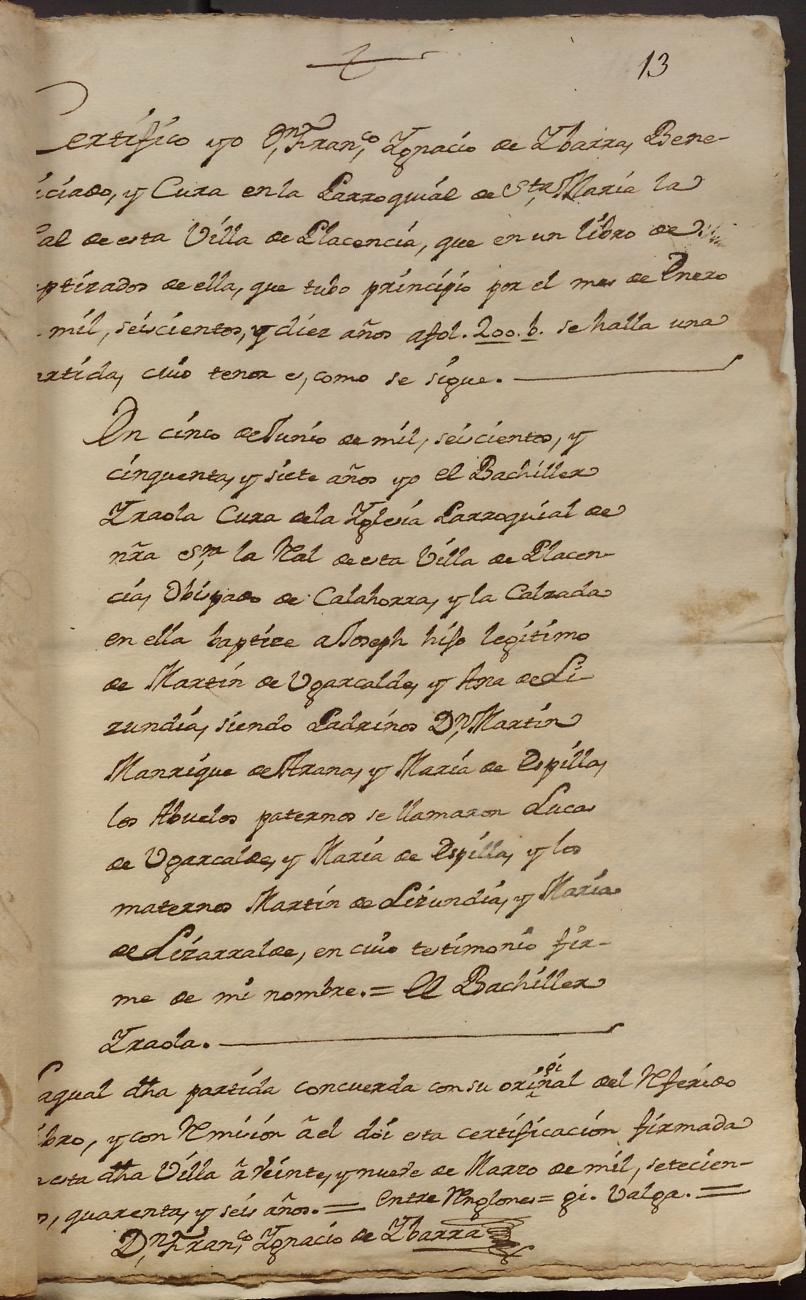 13
Certifico yo Dn, Franco, Ygnacio de Ybarra, Bene-
iciado, y Cura en la Parroquial de Sta, Maria la
al de esta Villa de Placencia, que en un libro de
ptizados de ella, que tubo principio por el mes de Enero
mil, seiscientos, y diez años afol. 200. b. se halla una
artida, cuio tenor es, como se sigue.
En cinco de Junio de mil, seiscientos, y
cinquenta, y siete años yo el Bachiller
Yraola Cura de la Yglesia Parroquial de
nra Sra, la Ral de esta Villa de Placen-
cia, Obispado de Calahorra, y la Calzada
en ella baptize a Joseph hijo legitimo
de Martin de Ugarcalde, y Ana de Li-
zundia, siendo Padrinos Dn, Martin
Manrique de Arana, y Maria de Espilla,
los Abuelos paternos se llamaron Lucas
de Ugarcalde, y Maria de Espilla, y los
maternos Martin de Lizundia, y Maria
de Lizarralde, en cuio testimonio fir-
me de mi nombre. = El Bachiller
Yraola.
Laqual dha partida concuerda con su original del Rferido
ibro, y con Rmision â el doi esta certificacion firmada
n esta dha Villa â veinte, y nueve de Marzo de mil, setecien-
s, quarenta, y seis años. = Entre Rnglones = gi. Valga. =
Dn, Franco, Ygnacio de Ybarra